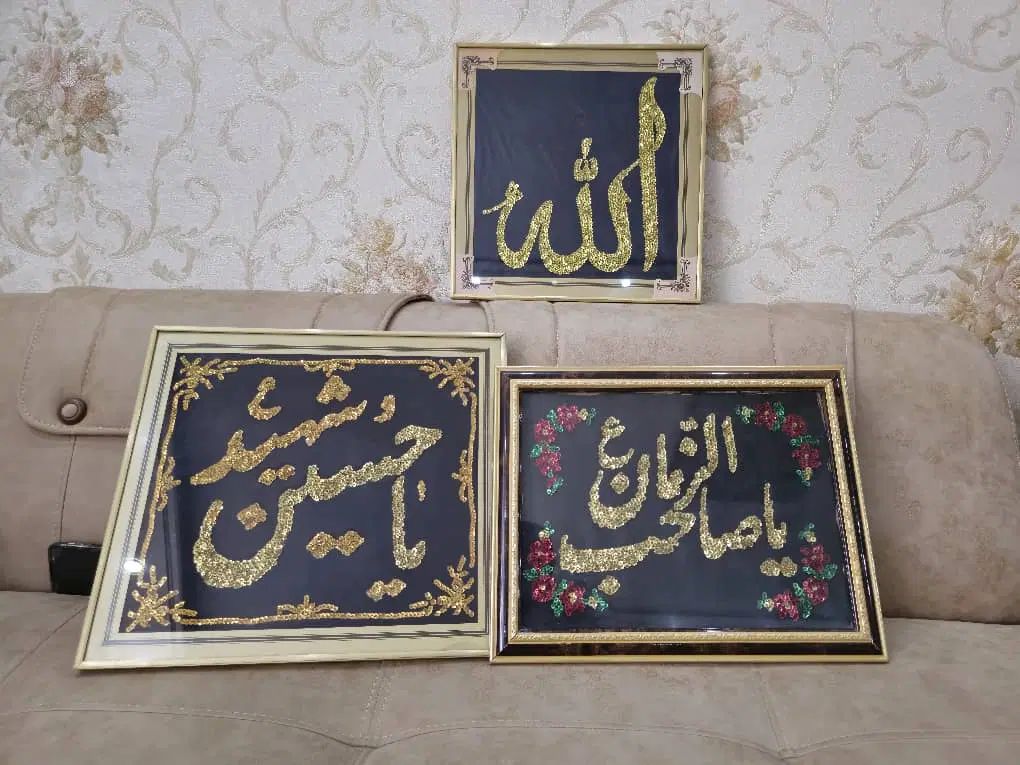 الله
یا صاحب
الزمان ع
یا حسین
شهید